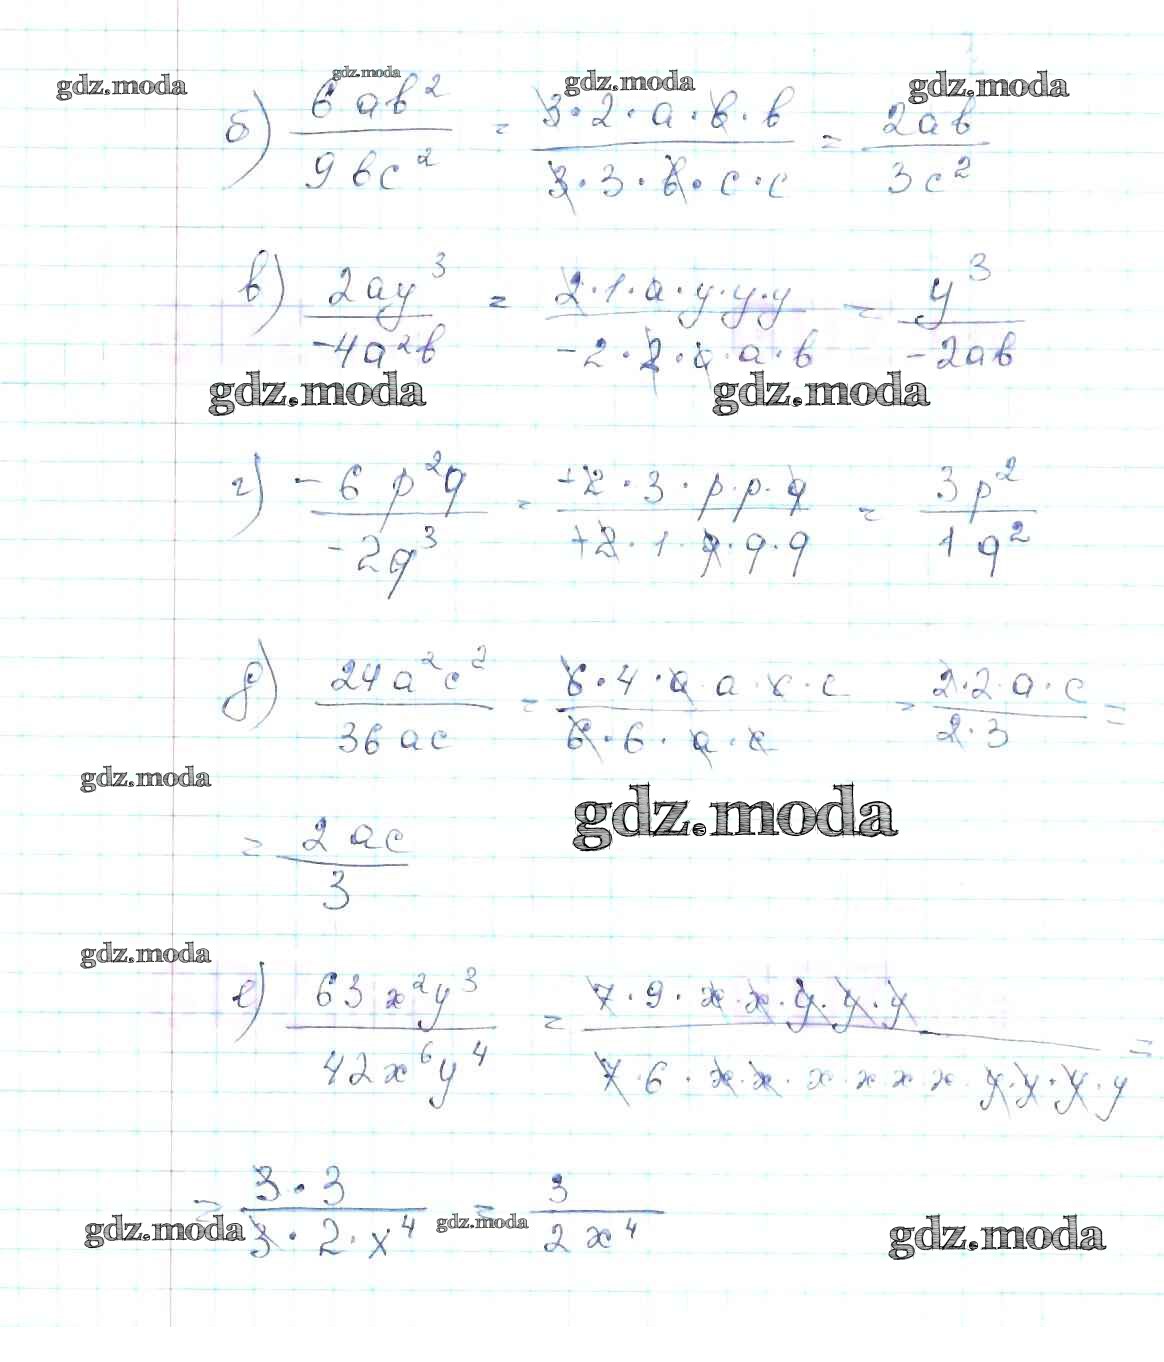 gdz.moda gdz.moda gdz.moda gdz.moda
б) 6ab²/9bc² = 3·2·a·b·b/3·3·b·c·c = 2ab/3c²
в) 2ay³/-4a²b = 2·1·a·y·y·y/-2·2·a·a·b = y³/-2ab
gdz.moda gdz.moda
г) -6p²q/-2q³ = -2·3·p·p·q/-2·1·q·q·q = 3p²/1q²
д) 24a²c²/36ac = 6·4·a·a·c·c/6·6·a·c = 2·2·a·c/2·3 =
gdz.moda gdz.moda
= 2ac/3
gdz.moda
е) 63x²y³/42x⁶y⁴ = 7·9·x·x·y·y·y/7·6·x·x·x·x·x·x·y·y·y·y =
= 3·3/3·2·x⁴ = 3/2x⁴
gdz.moda gdz.moda gdz.moda